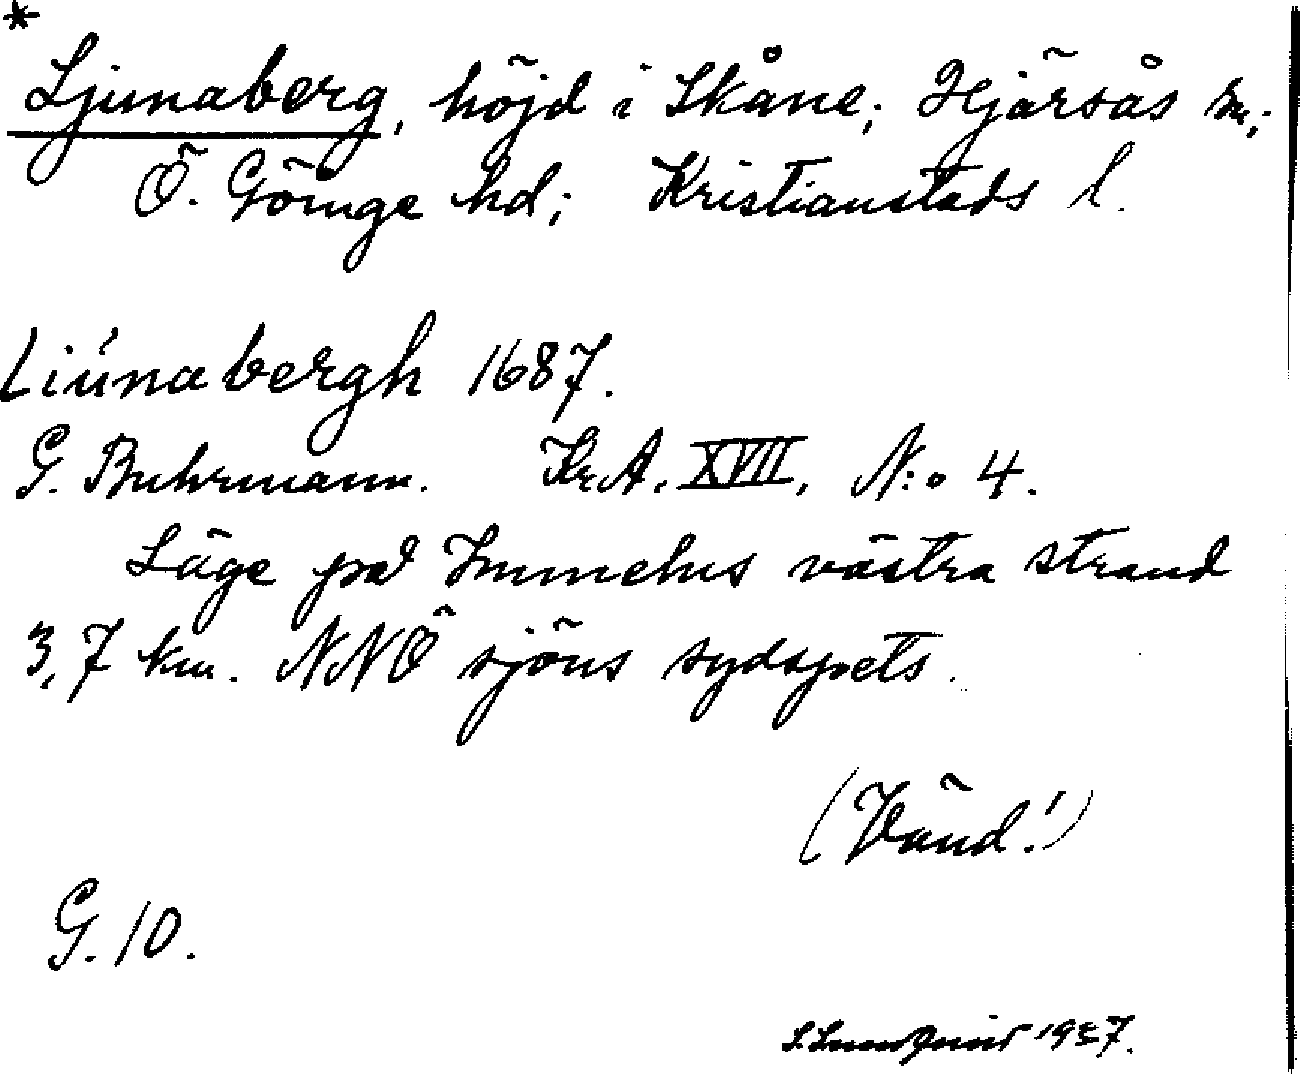 *
Ljunaberg, höjd i Skåne; Hjärsås sn.;
Ö. Göinge hd; Kristianstads l.
Liúnabergh 1687.
G. Buhrmann. Kr.A. XVII, N:o 4.
Läge på Immelns västra strand
3,7 km. NNÖ sjöns sydspets.
(Vänd!)
G. 10.
1927.